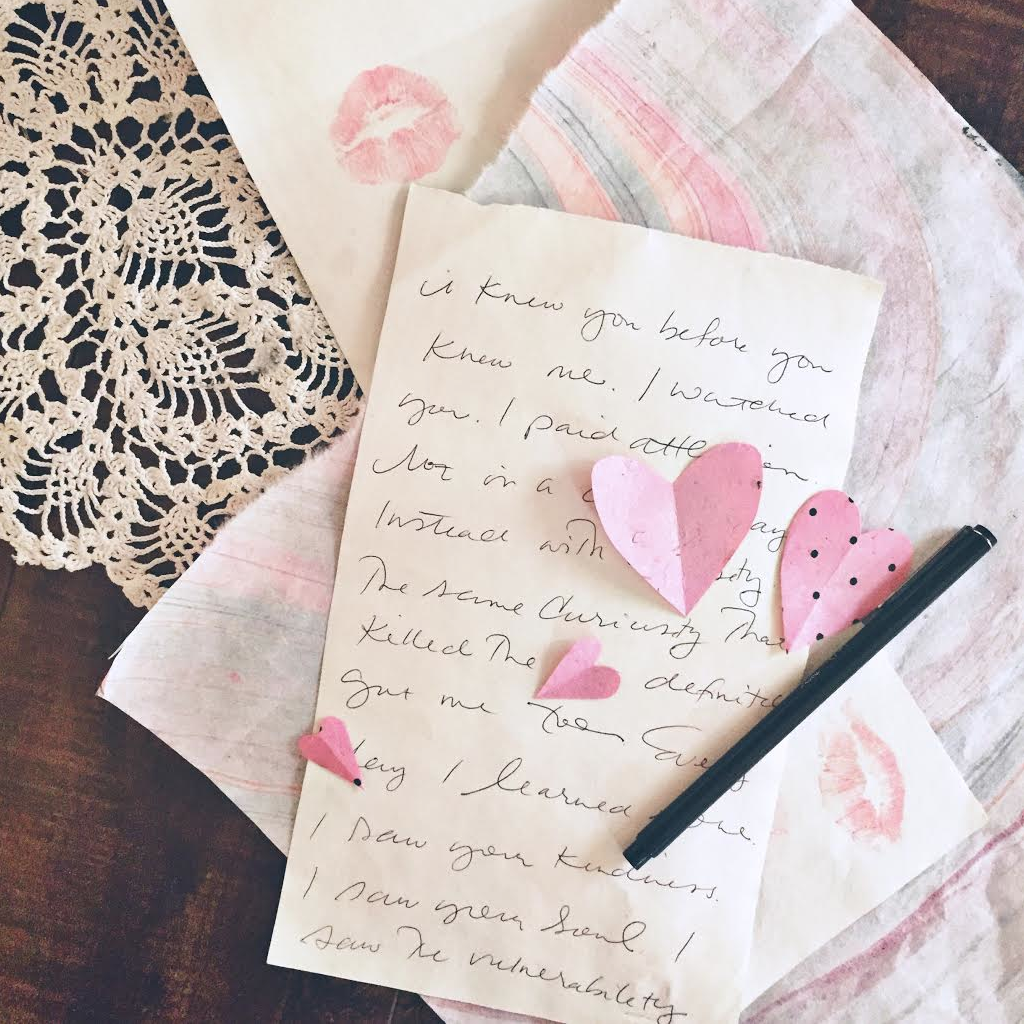 I knew you before you
knew me. I watched
you. I paid
Not in a
Instead with
The same Curiosity That
killed The definitely
got me too. Every
I learned
I saw your kindness.
I saw your Soul. I
saw The vulnerability